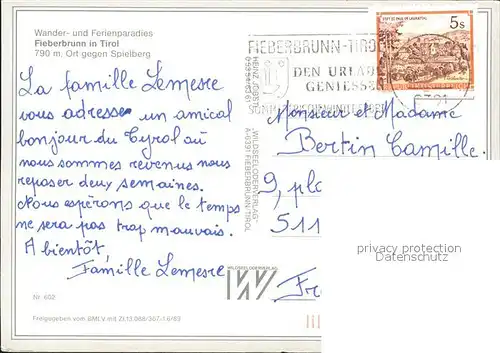 Wander- und Ferienparadies
Fieberbrunn in Tirol
790 m, Ort gegen Spielberg
La famille Lemesre
vous adresse un amical
bonjour du Tyrol où
nous sommes revenus nous
reposer deux semaines.
Nous espérons que le temps
ne sera pas trop mauvais.
A bientôt,
Famille Lemesre
Nr. 602
Freigegeben vom BMLV mit Zl.13.088/307-1.6/83
"WILDSEELODERVERLAG"
A-6391 FIEBERBRUNN/TIROL
WILDSEELODERVERLAG
FIEBERBRUNN-TIROL
DEN URLAUB
GENIESSE
5s
STIFT ST. PAUL IM LAVANTTAL
REPUBLIK ÖSTERREICH
Monsieur et Madame
Bertin Camille
9, pla
511
Fr
privacy protection
Datenschutz